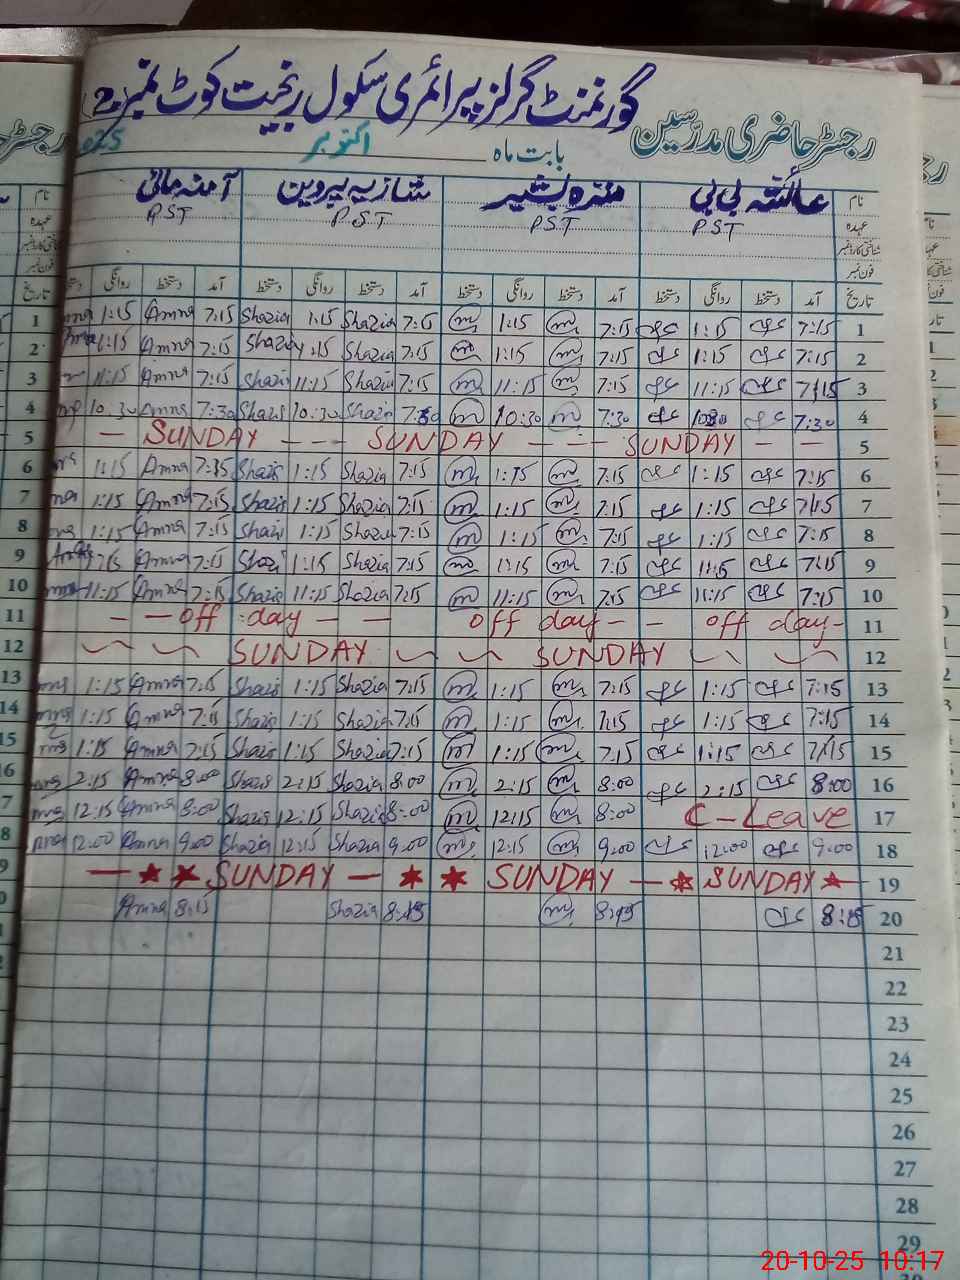 گورنمنٹ گرلز پرائمری سکول رنجیت کوٹ نمبر (2)
رجسٹر حاضری مدرسین
بابت ماہ اکتوبر 025
نام عائشہ بی بی منزہ بشیر شازیہ پروین آمنہ مائی نام
عہدہ PST PST PST PST عہدہ
شناختی کارڈ نمبر
فون نمبر
تاریخ آمد دستخط روانگی دستخط آمد دستخط روانگی دستخط آمد دستخط روانگی دستخط آمد دستخط روانگی تاریخ
1 1:15 Amna 7:15 Shazia 1:15 Shazia 7:15 1:15 7:15 1:15 7:15 1
2 1:15 Amna 7:15 Shazia 1:15 Shazia 7:15 1:15 7:15 1:15 7:15 2
3 11:15 Amna 7:15 Shazia 11:15 Shazia 7:15 11:15 7:15 11:15 7:15 3
4 10:30 Amna 7:30 Shazia 10:30 Shazia 7:30 10:30 7:30 10:30 7:30 4
5 — SUNDAY - - - SUNDAY - - - SUNDAY - - 5
6 1:15 Amna 7:35 Shazia 1:15 Shazia 7:15 1:15 7:15 1:15 7:15 6
7 1:15 Amna 7:15 Shazia 1:15 Shazia 7:15 1:15 7:15 1:15 7:15 7
8 1:15 Amna 7:15 Shazia 1:15 Shazia 7:15 1:15 7:15 1:15 7:15 8
9 Amna 7:15 Shazia 1:15 Shazia 7:15 1:15 7:15 11:15 7:15 9
10 11:15 Amna 7:15 Shazia 11:15 Shazia 7:15 11:15 7:15 11:15 7:15 10
11 - - off day - - off day - - off day - 11
12 SUNDAY SUNDAY 12
13 1:15 Amna 7:15 Shazia 1:15 Shazia 7:15 1:15 7:15 1:15 7:15 13
14 1:15 Amna 7:15 Shazia 1:15 Shazia 7:15 1:15 7:15 1:15 7:15 14
15 1:15 Amna 7:15 Shazia 1:15 Shazia 7:15 1:15 7:15 1:15 7:15 15
16 2:15 Amna 8:00 Shazia 2:15 Shazia 8:00 2:15 8:00 2:15 8:00 16
7 12:15 Amna 8:00 Shazia 12:15 Shazia 8:00 12:15 8:00 C-Leave 17
8 12:00 Amna 9:00 Shazia 12:15 Shazia 9:00 12:15 9:00 12:00 9:00 18
9 — ★ ★ SUNDAY — ★ ★ SUNDAY — ★ SUNDAY ★ 19
0 Amna 8:15 Shazia 8:15 8:15 8:15 20
21
22
23
24
25
26
27
28
29
20-10-25 10:17